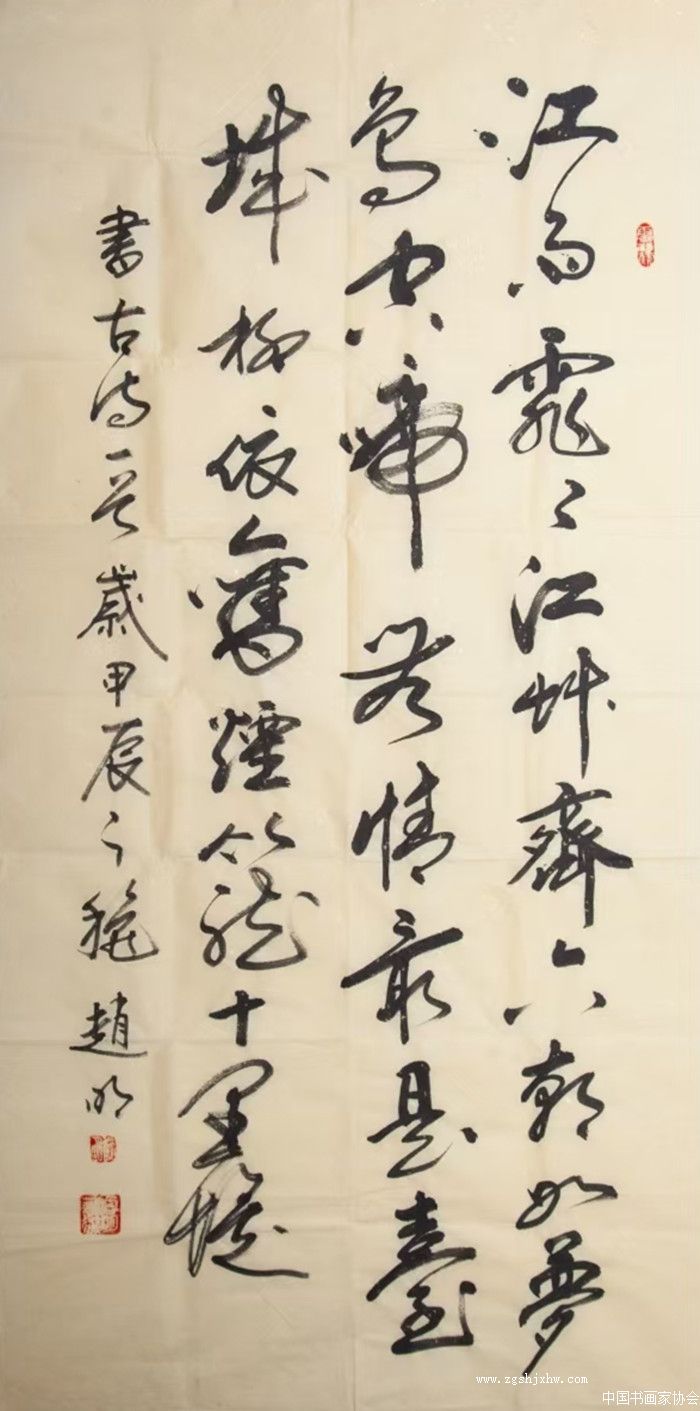 江雨霏〻江草齊六朝如夢
鳥空啼無情最是臺
城柳依舊煙籠十里堤
書古詩一首歲甲辰之秋趙明
www.zgshjxhw.com
中国书画家协会